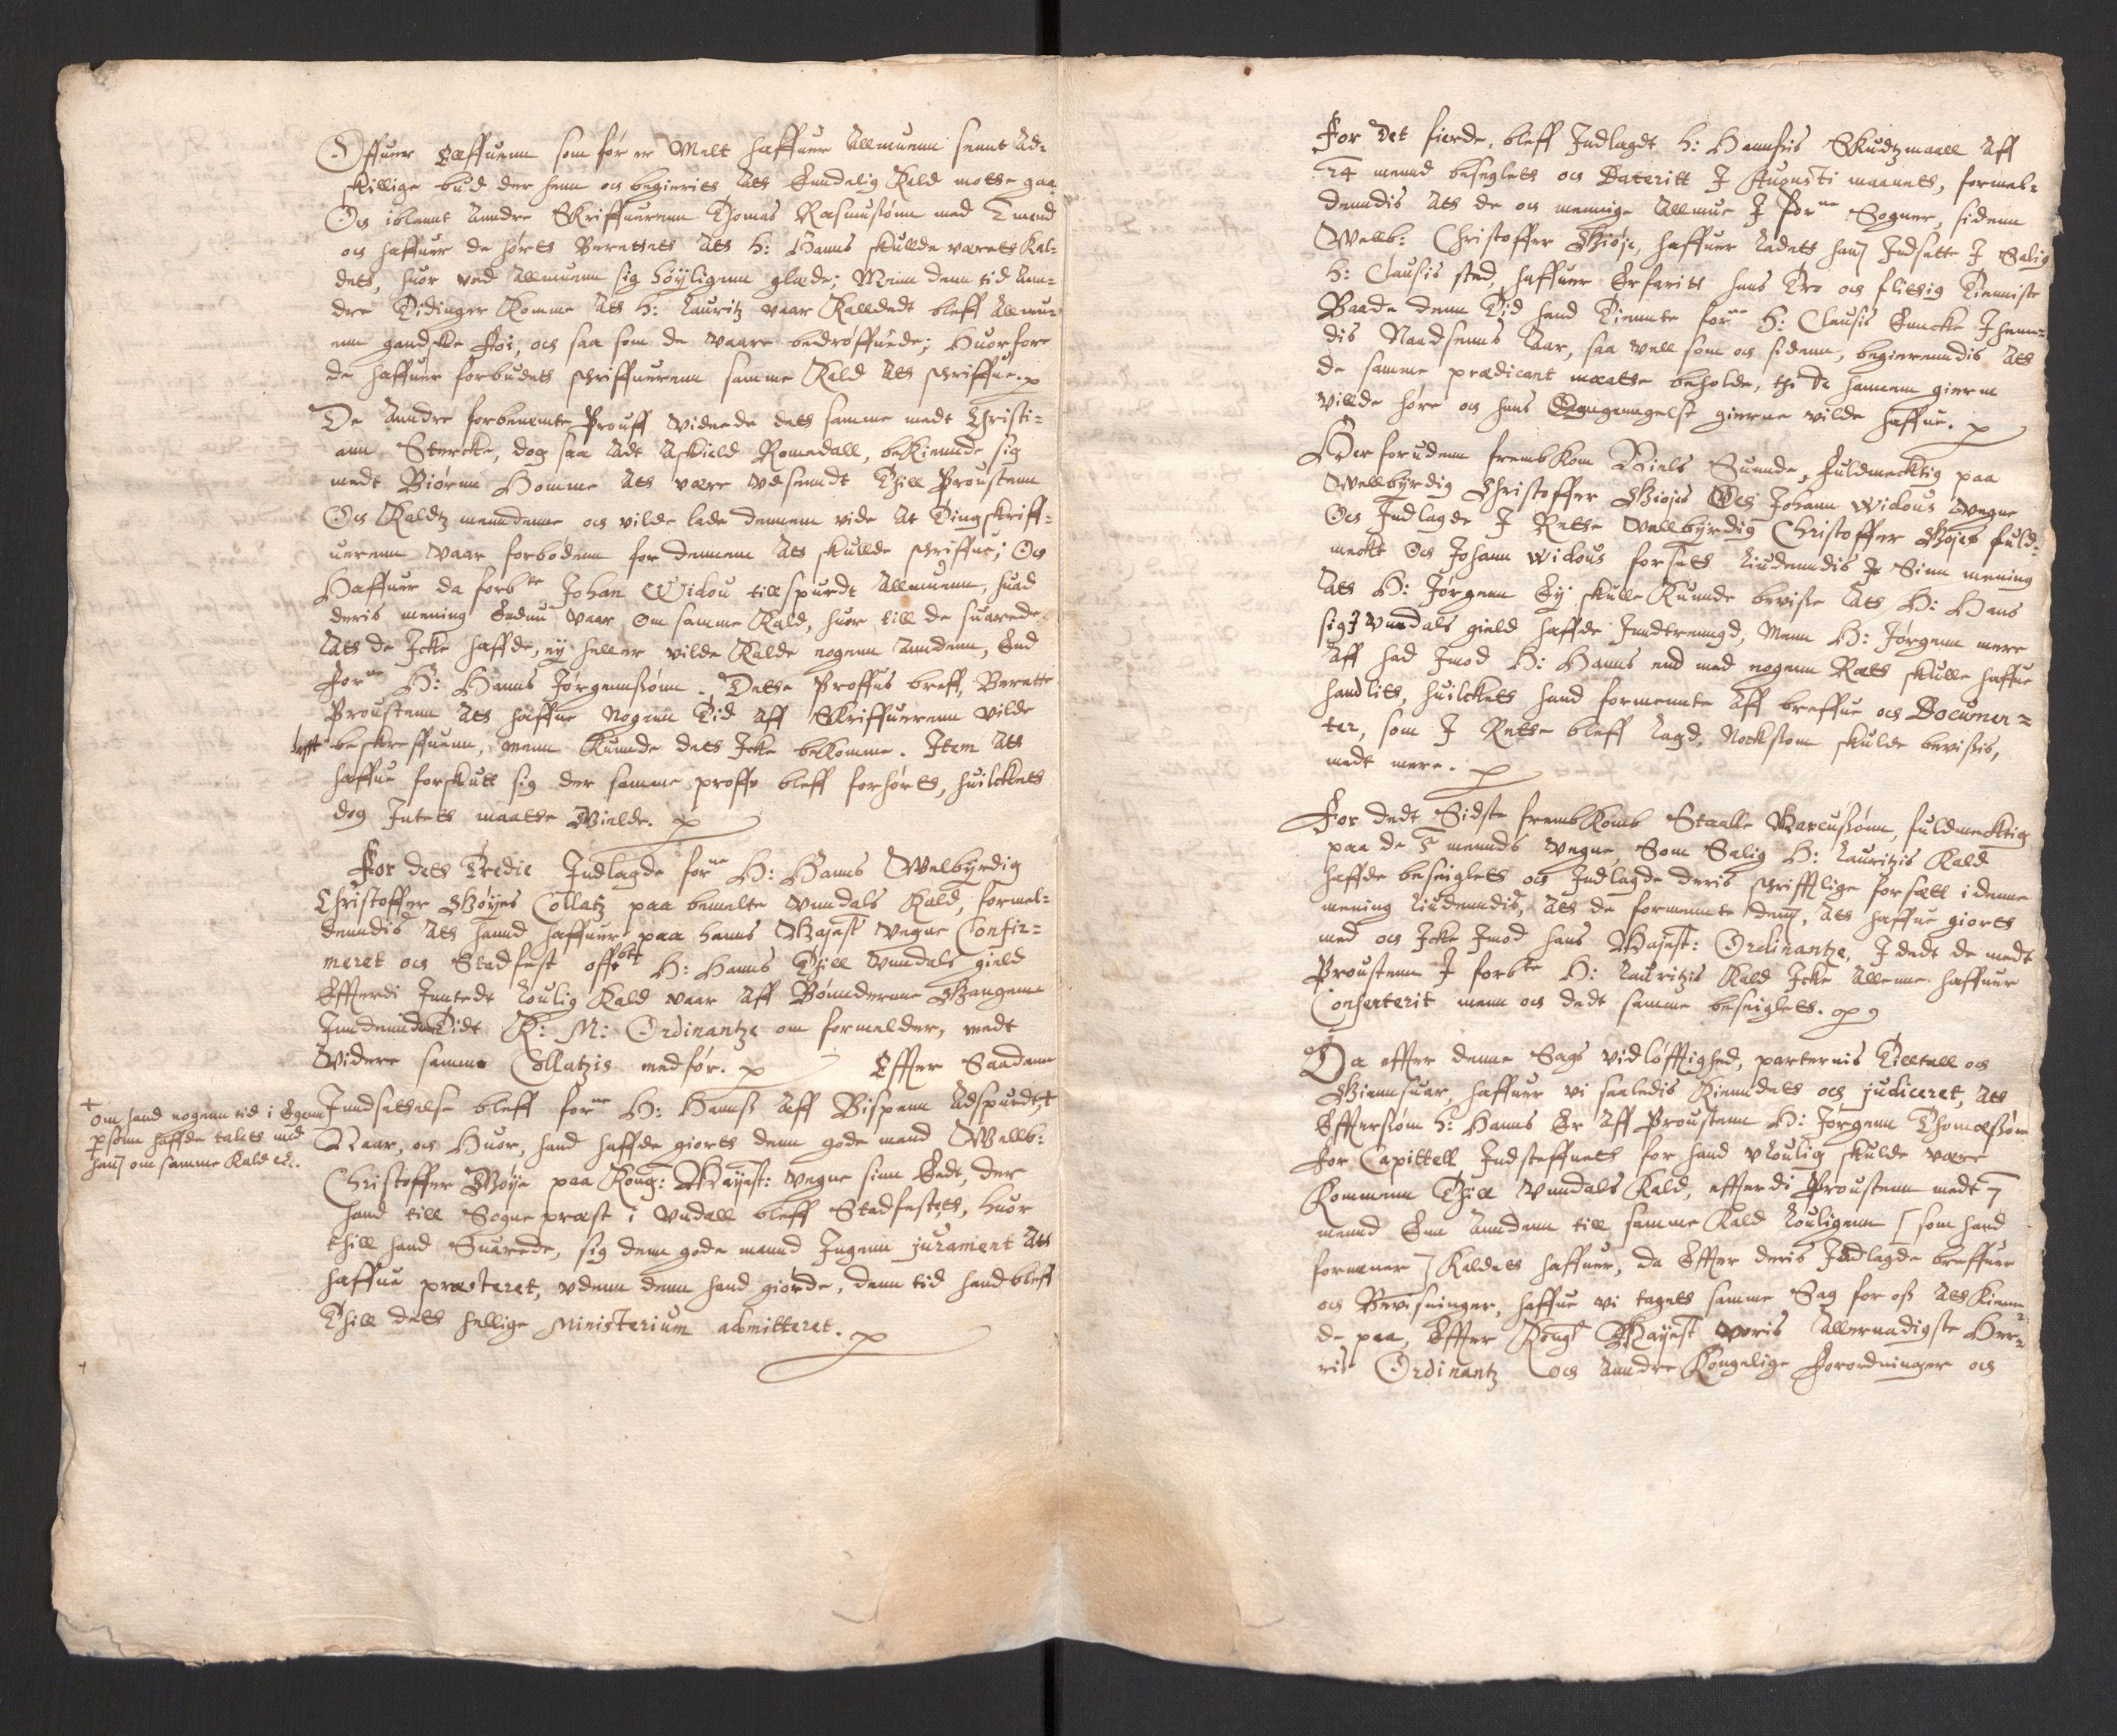 Offuer Ræffuenn som før er Melt haffuer Allmuenn sennt Ad:
skillige bud der henn och begierits Att Endelig Kald motte gaa
Och iblannt Anndre Skriffuerenn Thomas Rasmussønn med Emend
och haffuer de hørtt Berettet Att H: Hanns skullde været Kal-
det, huor ved Allmuenn sig høyligenn glæde; Menn denn tid Ann-
dre Tidinger Komme Att H: Lauritz vaar Kalledt bleff Allmu-
enn gandske stoi, och saa som de vaare bedrøffuede; Huorfore
de haffuer forbudett schriffuerenn samme Kald Att schriffue.
De Anndre forbenemte Prouff vidnede dett samme medt Christi-
ann Stercke, dog saa Adt Askield Romedall, bekiennde sig
medt Biørnn Homme Att være vdsenndt Thill Proustenn
Och Kaldtz menndenne och vilde lade dennem vide At Tingskriff-
uerenn vaar forbødenn for dennem Att skullde schriffue; Och
Haffuer da forbte Johan Widou tillspurdt Allmuenn, huad
deris mening Endnu vaar om samme Kald, huor till de suarede
Att de Icke haffde, ey heller vilde Kalde nogenn Anndenn, End
forne H: Hanns Jørgennssønn. Dette Proffues breff, Berette
Proustenn Att haffue Nogenn Tid Aff Skriffuerenn vilde
beskreffuenn, menn Kunde dett Icke bekomme. Item Att
haffue forskutt sig der samme proffue bleff forhørtt, huilckett
dog Intett maatte Gielde.
For dett Tredie Indlagde forne H: Hanns Welbyrdig
Christoffer Gøyes Collatz paa bemelte Vundals Kald, formel-
denndis Att hannd haffuer paa hanns Majest: vegne Confir-
meret och Stadfest offbte H: Hanns Thill Vundals gield
Effterdi Inntedt Loulig Kald vaar Aff Bønnderne Gangenn
Inndenn den Tidt K: M: Ordinantze om formelder, medt
Videre samme Collatzis medfør. Effter Saadann
Inndsettelse bleff forne H: Hanss Aff Bispenn Adspurdt,+
Naar, och Huor, hand haffde giortt denn gode mand Wellb:
Christoffer Gøye paa Kong: Mayest: vegne sinn Eedt, der
hand till Sogne prest i Vndall bleff Stadfestet, huor
thill hand Suarede, sig denn gode mannd Ingenn jurament Att
haffue præsteret, vdenn denn hand giorde, denn tid hand bleff
Thill dett hellige Ministerium admitteret.
+
om hand nogenn tid i Egenn
pesonn haffde talett med
hans om samme Kald etc.
For det fierde, bleff Indlagdt H: Hannsis Skudtzmaall Aff
24 mennd beseglett och Dateritt I Augusti maanett, formel-
denndis Att de och mennige Allmue I forne Sogner, sidenn
Wellb: Christoffer Giøje, haffuer Ladett hans Indsette I Salig
H: Clausis sted, haffuer Erfaritt hans Tro och flittig Tienniste
Baade denn Tid hand Tiennte forne H: Clausis Enncke I henn-
dis Naadsenns Aar, saa vell som och sidenn, begierenndis Att
de samme prædicant maatte beholde, thi De hannem gierne
villde høre och hans Omgenngelse gierne vilde haffue.
Der forudenn frembkom Niels Sunnde, fuldmecktig paa
Wellbyrdig Christoffer Giøjes Och Johann Widous vegne
Och Indlagde I Rette Wellbyrdig Christoffer Gøjes fuld-
meckt Och Johann Widous forsett liudenndis Ir Sinn mening
Att H: Jørgenn Ey skulle Kunnde bevisse Att H: Hans
sig I Vundals gield haffde Inndtrenngd, Menn H: Jørgenn mere
Aff had Imod H: Hanns end med nogenn Rett skulle haffue
handlitt, huilckett hand formennte Aff breffue och Documen-
ter, som I Rette bleff Lagd, Nocksom skulde bevissis,
medt mere.
For dedt Sidste frembkomb Staalle Marcussønn, fuldmecktig
paa de 7 mennds vegne, Som Salig H: Lauritzis Kald
haffde beseiglett och Indlagde deris schrifftlige forsett i denne
mening liudenndis, Att de formennte dem, Att haffue giortt
med och Icke Imod hans Mayest: Ordinantze, I dedt de medt
Proustenn I forbte H: Lauritzis Kald Icke Allenne haffuer
Consenterit menn och dedt samme beseiglett.
Da effter denne Sags vidløfftighed, parternis Tilltall och
Giennsuar, haffuer vi saaledis Kienndett och judiceret, Att
Efftersom H: Hanns Er Aff Proustenn H: Jørgenn Thomæssønn
For Capittell Indsteffnett for hand vloulig skulde være
Kommenn Thill Vundals Kald, effterdi Proustenn medt 7
mennd Enn Anndenn till samme Kald Louligenn [som hand
formener] Kaldett haffuer, da Effter deris Indlagde breffuer
och Bevisninger, haffue vi tagett samme Sag for oss Att Kienn-
de paa, Effter Kongl: Mayest: Woris Allernaadigste Her-
ris Ordinantz och Anndre Kongelige Forordninger och